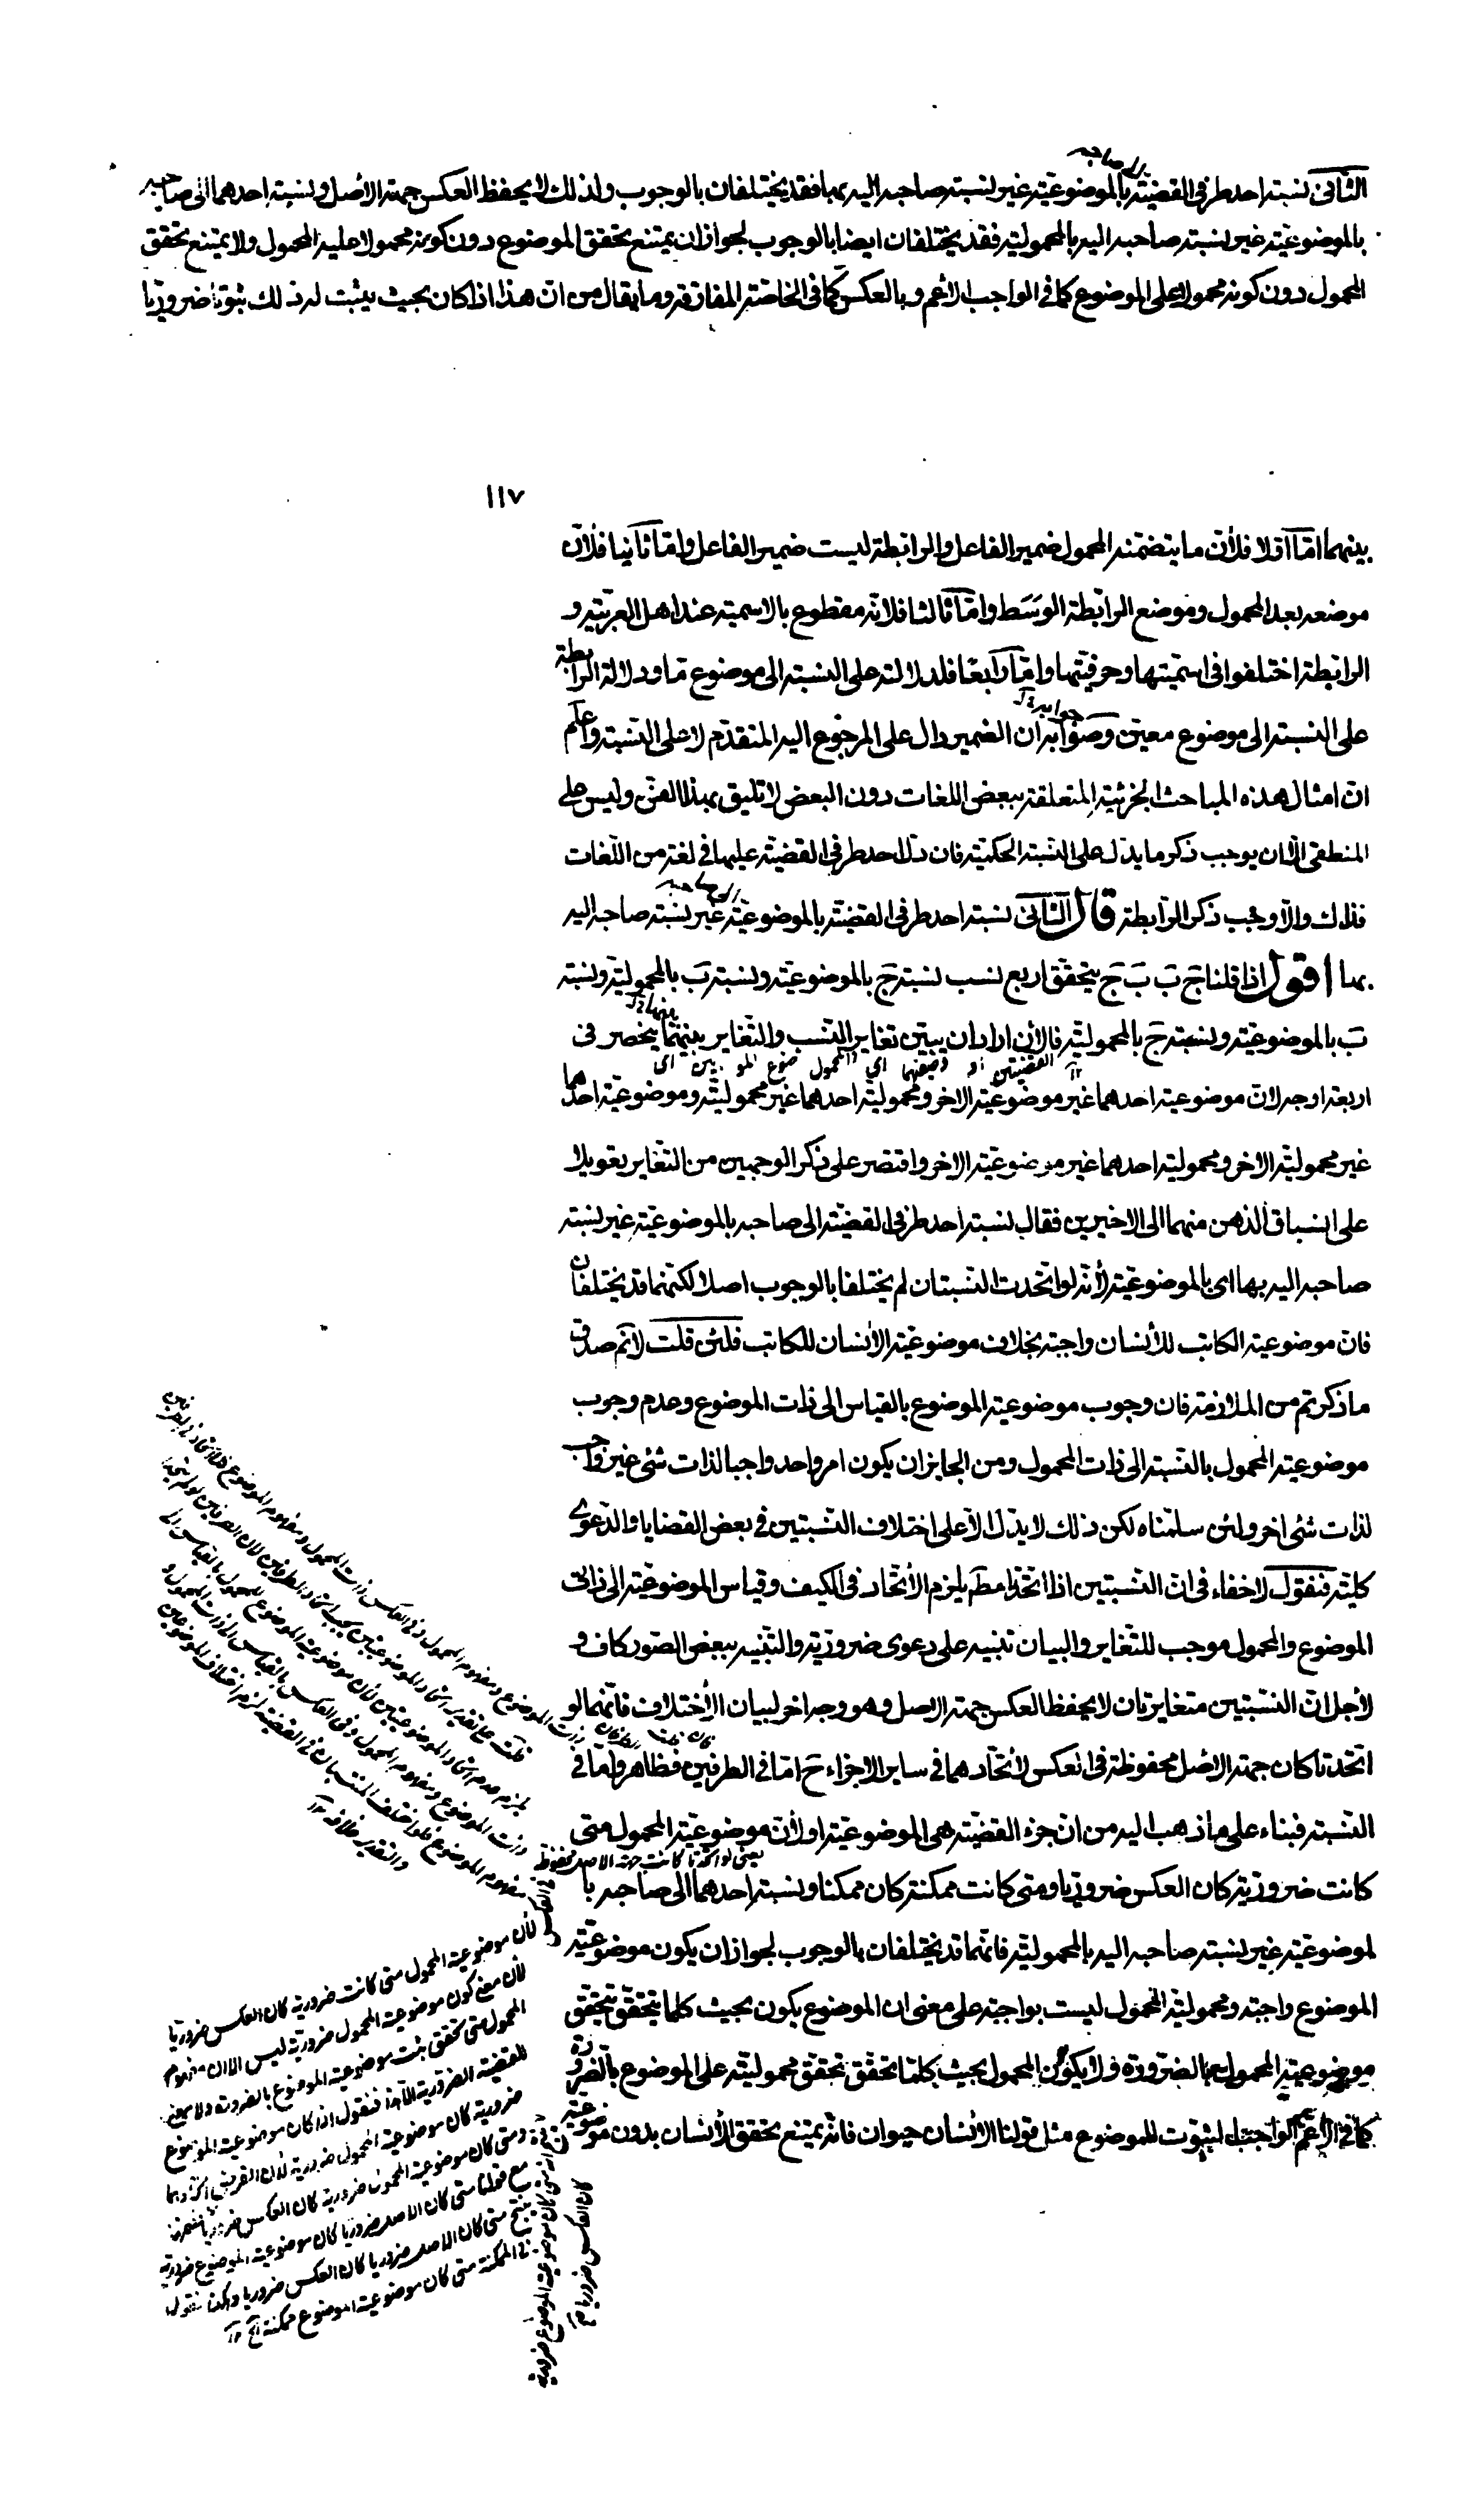 الى صاحبه
الثانى نسبة احد طرفى القضية بالموضوعية غير نسبة صاحبه اليه بها فقد يختلفان بالوجوب ولذلك لا يحفظ العكس جهة الاصل ونسبة احدهما الى صاحبه
بالموضوعية غير نسبة صاحبه اليه بالمحمولية فقد يختلفان ايضا بالوجوب لجواز ان يمتنع تحقق الموضوع دون كونه محمولا عليه المحمول ولا يمتنع تحقق
المحمول دون كونه محمولا على الموضوع كما فى الواجب الاعم وبالعكس كما فى الخاصة المفارقة وما يقال من ان هذا اذا كان بحيث يثبت له ذلك ثبوتا ضروريا
١١٧
بينهما امّا اوّلا فلأن ما يتضمنه المحمول ضمير الفاعل والرابطة ليست ضمير الفاعل وامّا ثانيا فلأن
موضعه بعد المحمول وموضع الرابطة الوسط وامّا ثالثا فلانه مقطوع بالاسمية عند اهل العربية و
الرابطة اختلفوا فى اسميتها وحرفيتها وامّا رابعا فلدلالته على النسبة الى موضوع ما ودلالة الرابطة
على النسبة الى موضوع معين وصوابه ان الضمير دال على المرجوع اليه المتقدم لا على النسبة واعلم
جوابه
ان امثال هذه المباحث الجزئية المتعلقة ببعض اللغات دون البعض لا تليق بهذا الفن وليس على
المنطقى الا ان يوجب ذكر ما يدل على النسبة الحكمية فان دل احد طرفى القضية عليها فى لغة من اللغات
فذلك والا وجب ذكر الرابطة قال الثانى نسبة احد طرفى القضية بالموضوعية غير نسبة صاحبه اليه
الى صاحبه
بها اقول اذا قلنا ج ب ب ج يتحقق اربع نسب نسبة ج بالموضوعية ونسبة ب بالمحمولية ونسبة
ب بالموضوعية ونسبة ج بالمحمولية فالآن اراد ان يبين تغاير النسب والتغاير بينهما ينحصر فى
بينها
اربعة اوجه لان موضوعية احدهما غير موضوعية الاخر ومحمولية احدهما غير محموليته وموضوعية احدهما
غير محمولية الاخر ومحمولية احدهما غير موضوعية الاخر واقتصر على ذكر الوجهين من التغاير تعويلا
على انسباق الذهن منهما الى الاخيرين فقال نسبة احد طرفى القضية الى صاحبه بالموضوعية غير نسبة
صاحبه اليه بها اى بالموضوعية لانه لو اتحدت النسبتان لم يختلفا بالوجوب اصلا لكنهما قد يختلفان
فان موضوعية الكاتب للانسان واجبة بخلاف موضوعية الانسان للكاتب فلئن قلت لانم صدق
ما ذكرتم من الملازمة فان وجوب موضوعية الموضوع بالقياس الى ذات الموضوع وعدم وجوب
موضوعية المحمول بالنسبة الى ذات المحمول ومن الجايز ان يكون امر واحد واجبا لذات شئ غير واجب
لذات شئ اخر ولئن سلمناه لكن ذلك لا يدل الا على اختلاف النسبتين فى بعض القضايا والدعوى
كلية فنقول لا خفاء فى ان النسبتين اذا اتحدتا مط يلزم الاتحاد فى الكيف وقياس الموضوعية الى ذاتى
الموضوع والمحمول موجب للتغاير والبيان تنبيه على دعوى ضرورية والتنبيه ببعض الصور كاف و
لأجل ان النسبتين متغايرتان لا يحفظ العكس جهة الاصل وهو وجه اخر لبيان الاختلاف فانهما لو
اتحدتا كان جهة الاصل محفوظة فى العكس لاتحادهما فى ساير الاجزاء ح امّا فى الطرفين فظاهر وامّا فى
النسبة فبناء على ما ذهب اليه من ان جزء القضية هى الموضوعية اولأن موضوعية المحمول متى
يعنى لو اتحدتا كانت جهة الاصل محفوظة
كانت ضرورية كان العكس ضروريا ومتى كانت ممكنة كان ممكنا ونسبة احدهما الى صاحبه با
لموضوعية غير نسبة صاحبه اليه بالمحمولية فانهما قد يختلفان بالوجوب لجواز ان يكون موضوعية
الموضوع واجبة ومحمولية المحمول ليست بواجبة على معنى ان الموضوع يكون بحيث كلما يتحقق يتحقق
موضوعيته للمحمول بالضرورة ولا يكون المحمول بحيث كلما تحقق تحقق محموليته على الموضوع بالضرورة
كما فى الاعم الواجب الثبوت للموضوع مثل قولنا الانسان حيوان فانه يمتنع تحقق الانسان بدون موضوعية
لأن موضوعية المحمول متى كانت ضرورية كان العكس ضروريا
لأن معنى كون موضوعية المحمول ضرورية ليس الا ان مفهوم
المحمول متى تحقق يثبت موضوعية الموضوع بالضرورة ولا معنى
للقضية الضرورية الا هذا فنقول اذا كان موضوعية الموضوع
ضرورية كان موضوعية المحمول ضرورية لأن الفرض اتحادهما
ومتى كان موضوعية المحمول ضرورية كان العكس ضروريا
مع قولنا متى كان الاصل ضروريا كان موضوعية الموضوع ضرورية
ينتج متى كان الاصل ضروريا كان العكس ضروريا وكذا نقول
فى الممكنة متى كان موضوعية الموضوع ممكنة
كان العكس ضروريا